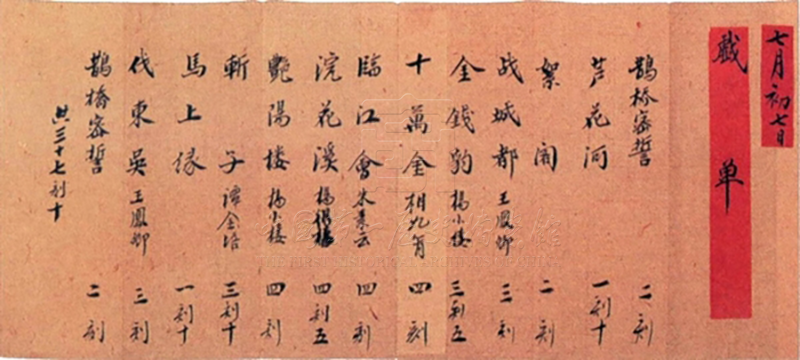 七月初七日
戲单
鵲橋密誓 二刻
芦花河 一刻十
絮閣 二刻
战城都 王鳳卿 三刻
金錢豹 楊小樓 三刻五
十萬金 相九筲 四刻
臨江會 朱素云 四刻
浣花溪 楊得福 四刻五
艷陽楼 楊小樓 四刻
斬子 譚金培 三刻十
馬上缘 一刻十
伐東吳 王鳳卿 三刻
鵲橋密誓 二刻
共三十七刻十